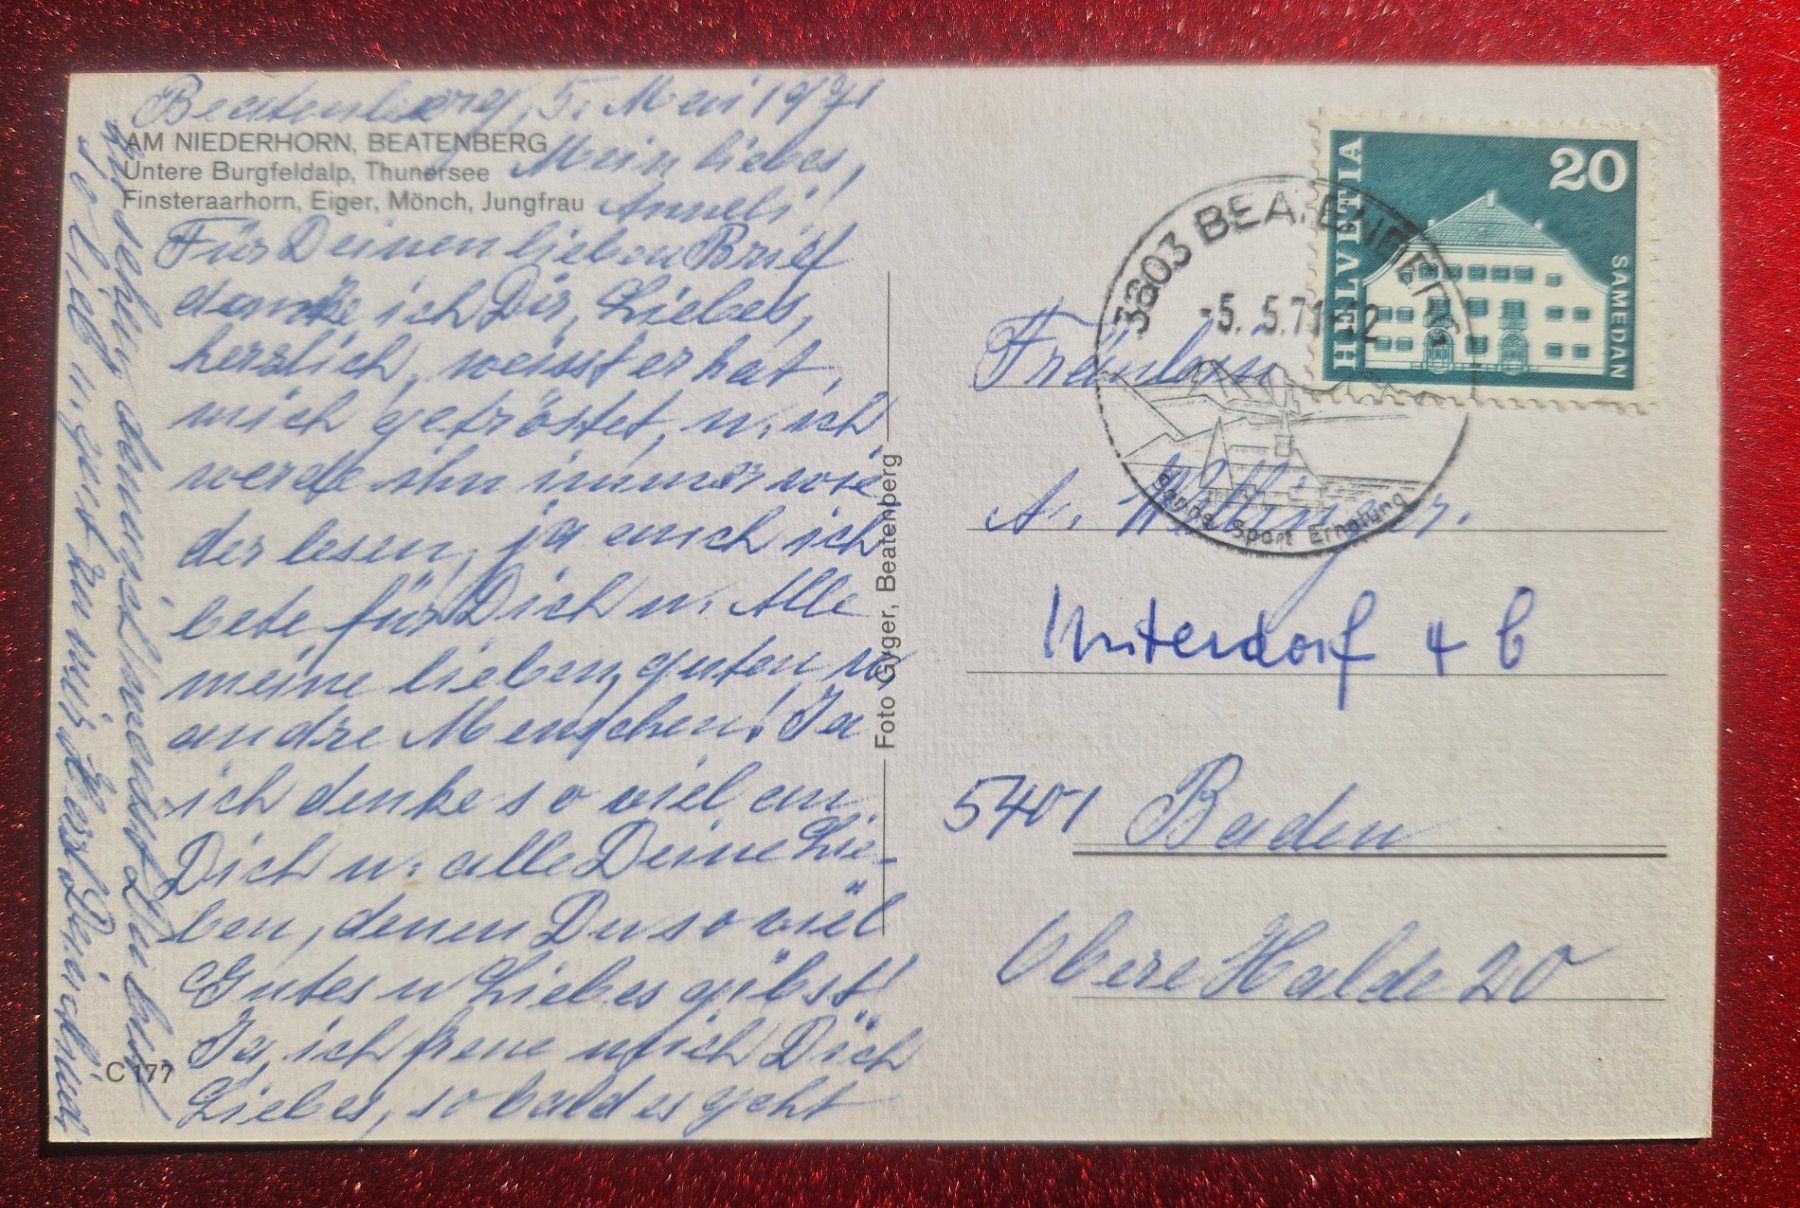 Beatenberg, 5. Mai 1971
AM NIEDERHORN, BEATENBERG
Untere Burgfeldalp, Thunersee
Finsteraarhorn, Eiger, Mönch, Jungfrau
Mein liebes,
Anneli!
Für Deinen lieben Brief
danke ich Dir, Liebes,
herzlich, weisst er hat,
mich getröstet, u. ich
werde ihn immer wie
der lesen, ja auch ich
bete für Dich u. Alle
meine lieben, guten u
andre Menschen! Ja
ich denke so viel an
Dich u. alle Deine Lie-
ben, denen Du so viel
Gutes u Liebes gibst!
Ja, ich freue mich Dich
Liebes, so bald es geht
zu sehen
so lieb u. zu mir
C 177
Foto Gyger, Beatenberg
HELVETIA
20
SAMEDAN
3803 BEATENBERG
-5. 5.71-12
Sonne Sport Erholung
Fräulein
A.
Unterdorf 4 b
5401 Baden
Obere Halde 20